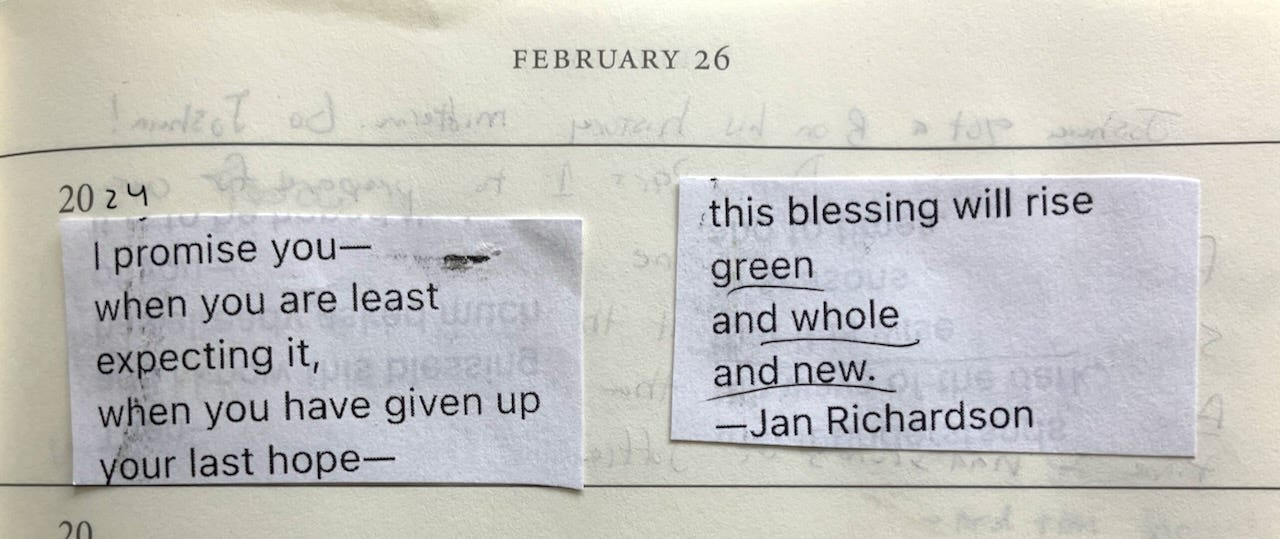 FEBRUARY 26
2024
I promise you—
when you are least
expecting it,
when you have given up
your last hope—
this blessing will rise
green
and whole
and new.
—Jan Richardson
20